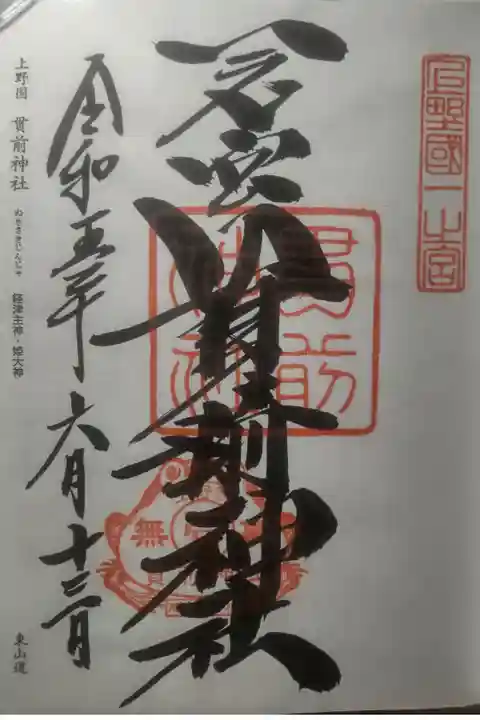 上野國一之宮
一之宮貫前神社
貫前
神社
無
令和五年六月十三日
上野国 貫前神社 ぬきさきじんじゃ 経津主神・姫大神 東山道